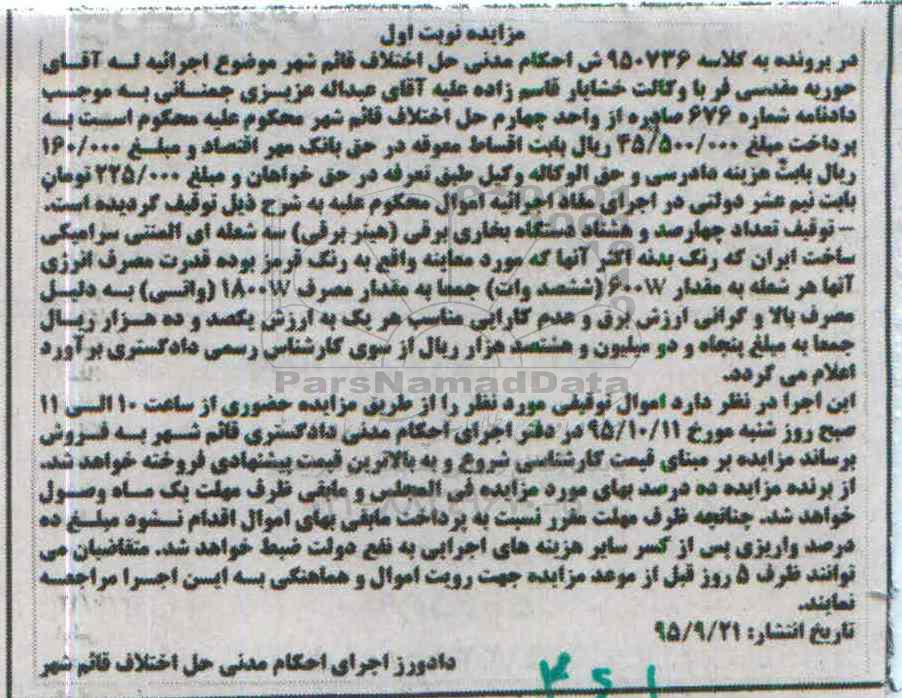 مزایده نوبت اول
در پرونده به کلاسه ۹۵۰۷۳۶ ش احکام مدنی حل اختلاف قائم شهر موضوع اجرائیه لـه آقـای
حوریه مقدسی فر با وکالت خشایار قاسم زاده علیه آقای عبداله عزیـزی جمنـانی بـه موجـب
دادنامه شماره ۶۷۶ صادره از واحد چهارم حل اختلاف قائم شهر محکوم علیه محکوم اسـت بـه
پرداخت مبلغ ۴۵/۵۰۰/۰۰۰ ریال بابت اقساط معوقه در حق بانک مهر اقتصاد و مبلـغ ۱۶۰/۰۰۰
ریال بابت هزینه دادرسی و حق الوکاله وکیل طبق تعرفه در حق خواهان و مبلغ ۲۲۵/۰۰۰ تومان
بابت نیم عشر دولتی در اجرای مفاد اجرائیه اموال محکوم علیه به شرح ذیل توقیف گردیده است.
– توقیف تعداد چهارصد و هشتاد دستگاه بخاری برقی (هیتر برقی) سه شعله ای المنتی سرامیکی
ساخت ایران که رنگ بدنه اکثر آنها که مورد معاینه واقع به رنگ قرمز بوده قدرت مصرف انرژی
آنها هر شعله به مقدار ۶۰۰W (ششصد وات) جمعا به مقدار مصرف ۱۸۰۰W (واتسی) بـه دلیـل
مصرف بالا و گرانی ارزش برق و عدم کارایی مناسب هر یک به ارزش یکصد و ده هـزار ریـال
جمعا به مبلغ پنجاه و دو میلیون و هشتصد هزار ریال از سوی کارشناس رسمی دادگستری برآورد
اعلام می گردد.
ParsNamadData
این اجرا در نظر دارد اموال توقیفی مورد نظر را از طریق مزایده حضوری از ساعت ۱۰ الـی ۱۱
صبح روز شنبه مورخ ۹۵/۱۰/۱۱ در دفتر اجرای احکام مدنی دادگستری قائم شـهر بـه فـروش
برساند مزایده بر مبنای قیمت کارشناسی شروع و به بالاترین قیمت پیشنهادی فروخته خواهد شد.
از برنده مزایده ده درصد بهای مورد مزایده فی المجلس و مابقی ظرف مهلت یک مـاه وصـول
خواهد شد. چنانچه ظرف مهلت مقرر نسبت به پرداخت مابقی بهای اموال اقدام نـشود مبلـغ ده
درصد واریزی پس از کسر سایر هزینه های اجرایی به نفع دولت ضبط خواهد شد. متقاضیان می
توانند ظرف ۵ روز قبل از موعد مزایده جهت رویت اموال و هماهنگی بـه ایـن اجـرا مراجعـه
نمایند.
تاریخ انتشار: ۹۵/۹/۲۱
دادورز اجرای احکام مدنی حل اختلاف قائم شهر